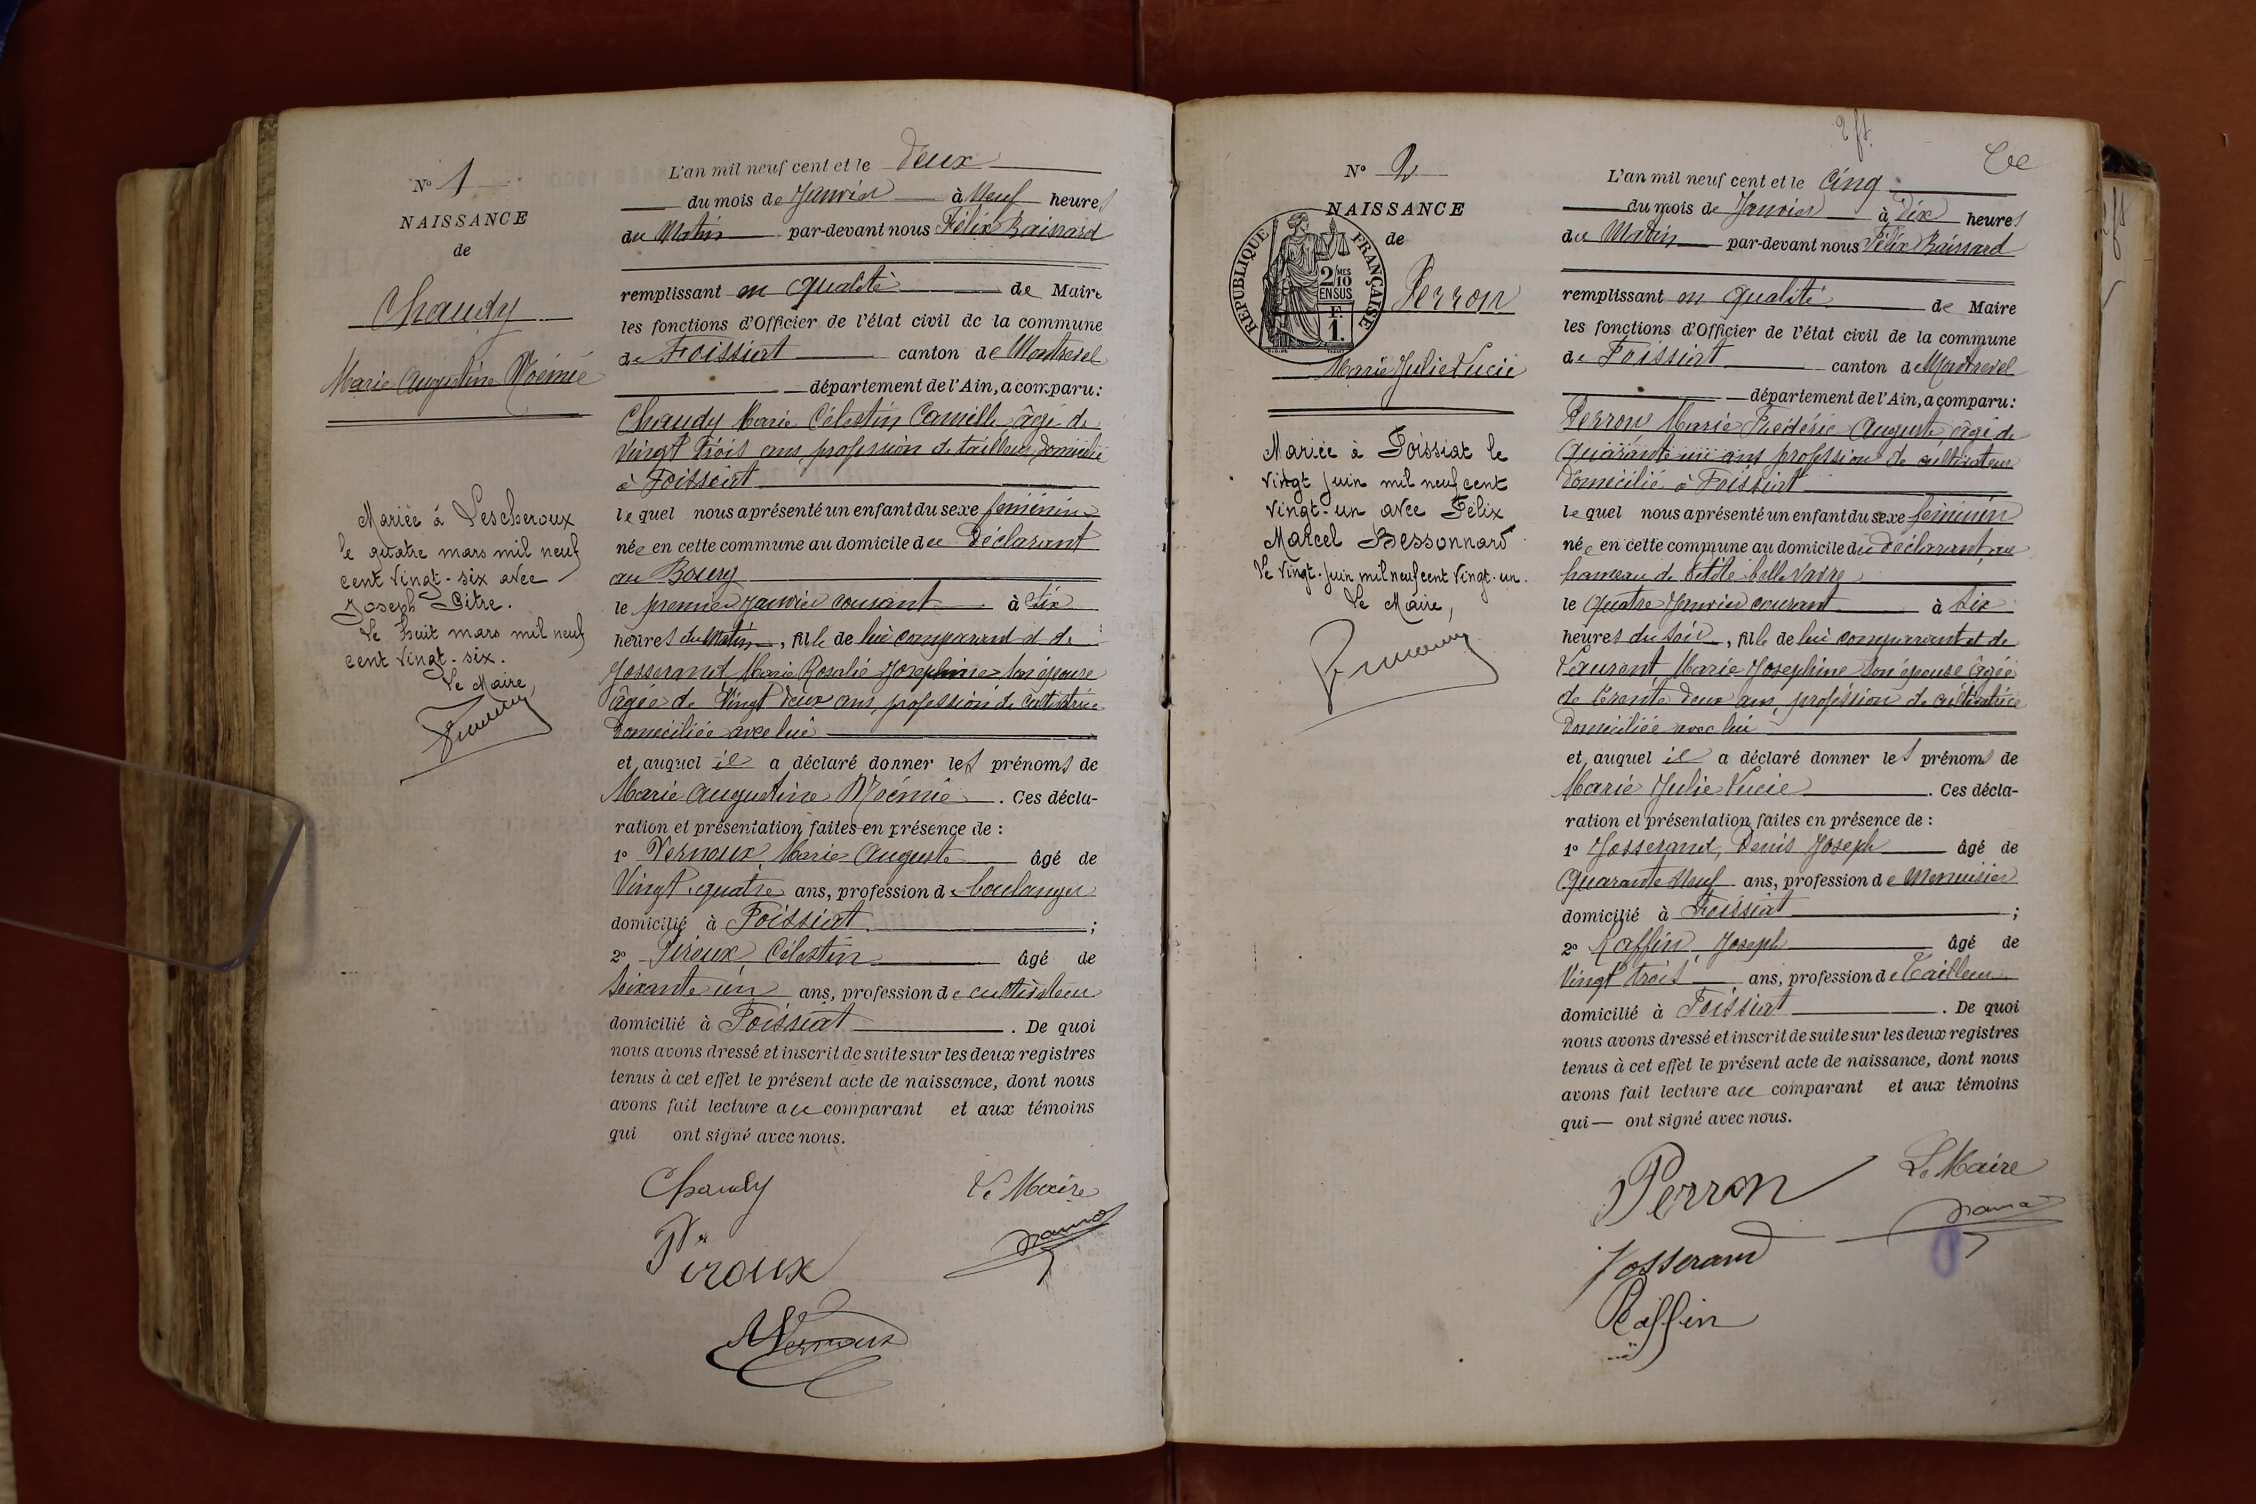 N° 1
NAISSANCE
de
Chaudy
Marie Augustine Noémie
Mariée à Lescheroux
le quatre mars mil neuf
cent vingt-six avec
Joseph Pitre.
Le huit mars mil neuf
cent vingt-six.
Le Maire,
L'an mil neuf cent et le deux
du mois de Janvier à Neuf heures
du Matin par-devant nous Félix Raisnard
remplissant en qualité de Maire
les fonctions d'Officier de l'état civil de la commune
de Foissiat canton de Montrevel
département de l'Ain, a comparu:
Chaudy Marie Célestin Camille âgé de
Vingt Trois ans, profession de tailleur, domicilié
à Foissiat
lequel nous a présenté un enfant du sexe féminin
née en cette commune au domicile du Déclarant
au Bourg
le premier Janvier courant à six
heures du Matin, fille de lui comparant et de
Josserand Marie Rosalie Josephine son épouse
âgée de Vingt Deux ans, profession de Cultivatrice
Domiciliée avec lui
et auquel il a déclaré donner les prénoms de
Marie Augustine Noémie. Ces décla-
ration et présentation faites en présence de :
1° Vernoux, Marie Auguste âgé de
Vingt quatre ans, profession de boulanger
domicilié à Foissiat ;
2° Piroux Célestin âgé de
Soixante un ans, profession de cultivateur
domicilié à Foissiat. De quoi
nous avons dressé et inscrit de suite sur les deux registres
tenus à cet effet le présent acte de naissance, dont nous
avons fait lecture au comparant et aux témoins
qui ont signé avec nous.
Chaudy Le Maire
Piroux
Vernoux
2 ft.
N° 2
NAISSANCE
de
RÉPUBLIQUE FRANÇAISE
2/10 MES
EN SUS
F.
1.
Perron
Marie Julie Lucie
Mariée à Foissiat le
vingt juin mil neuf cent
vingt-un avec Félix
Marcel Bessonnard
Le vingt-juin mil neuf cent vingt-un.
Le Maire,
L'an mil neuf cent et le Cinq
du mois de Janvier à Dix heures
du Matin par-devant nous Félix Raisnard
remplissant en qualité de Maire
les fonctions d'Officier de l'état civil de la commune
de Foissiat canton de Montrevel
département de l'Ain, a comparu:
Perron Marie Frédéric Auguste, âgé de
Quarante un ans profession de cultivateur
Domicilié à Foissiat
lequel nous a présenté un enfant du sexe féminin
née en cette commune au domicile du déclarant, au
hameau de
le Quatre Janvier courant à six
heures du soir, fille de lui comparant et de
Laurent Marie Josephine son épouse âgée
de trente Deux ans, profession de cultivatrice
Domiciliée avec lui
et auquel il a déclaré donner les prénoms de
Marie Julie Lucie. Ces décla-
ration et présentation faites en présence de :
1° Josserand, Denis Joseph âgé de
Quarante Neuf ans, profession de Menuisier
domicilié à Foissiat ;
2° Raffin, Joseph âgé de
Vingt trois ans, profession de Tailleur
domicilié à Foissiat. De quoi
nous avons dressé et inscrit de suite sur les deux registres
tenus à cet effet le présent acte de naissance, dont nous
avons fait lecture au comparant et aux témoins
qui — ont signé avec nous.
Perron Le Maire
Josserand
Raffin